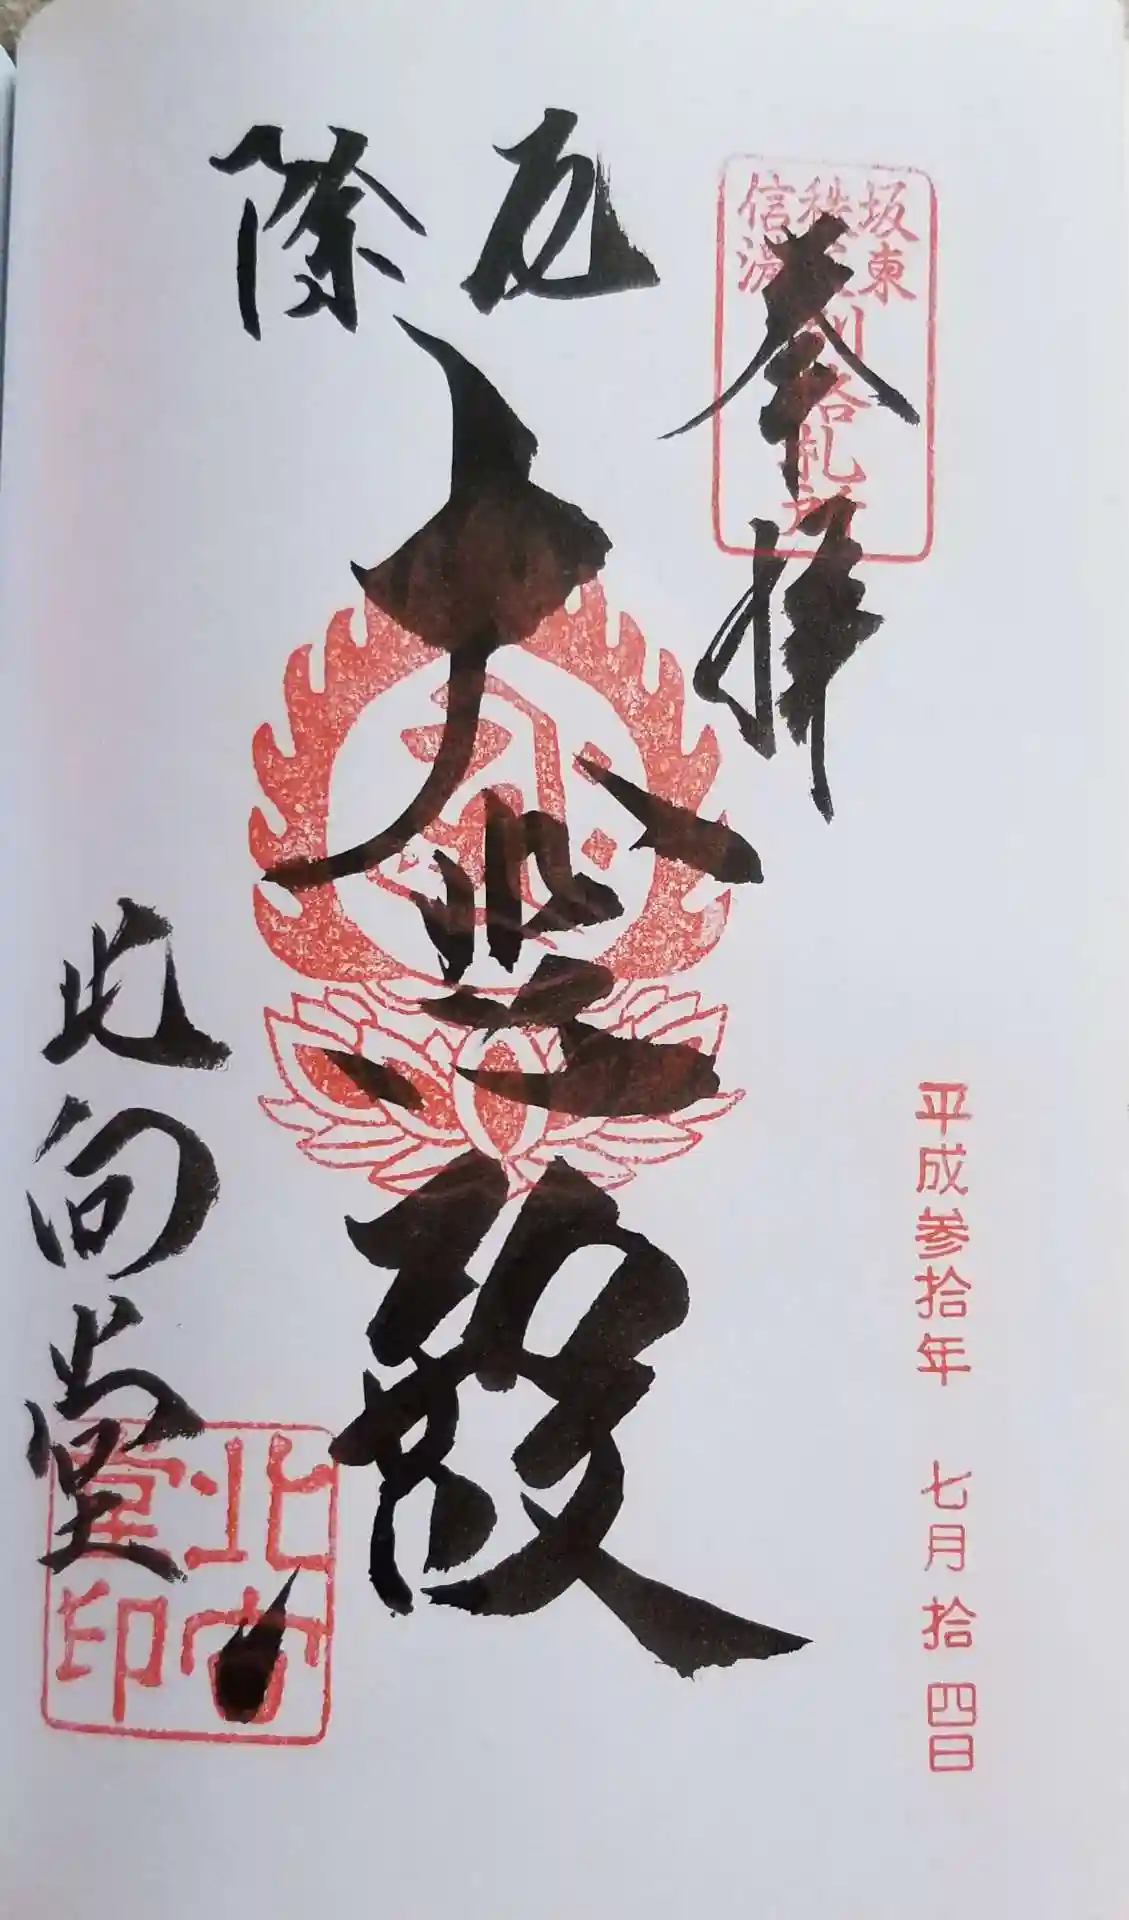 坂東
秩父
信濃
別格札所
奉拝
平成参拾年 七月拾四日
厄
除
大悲殿
北向堂
北向
堂印